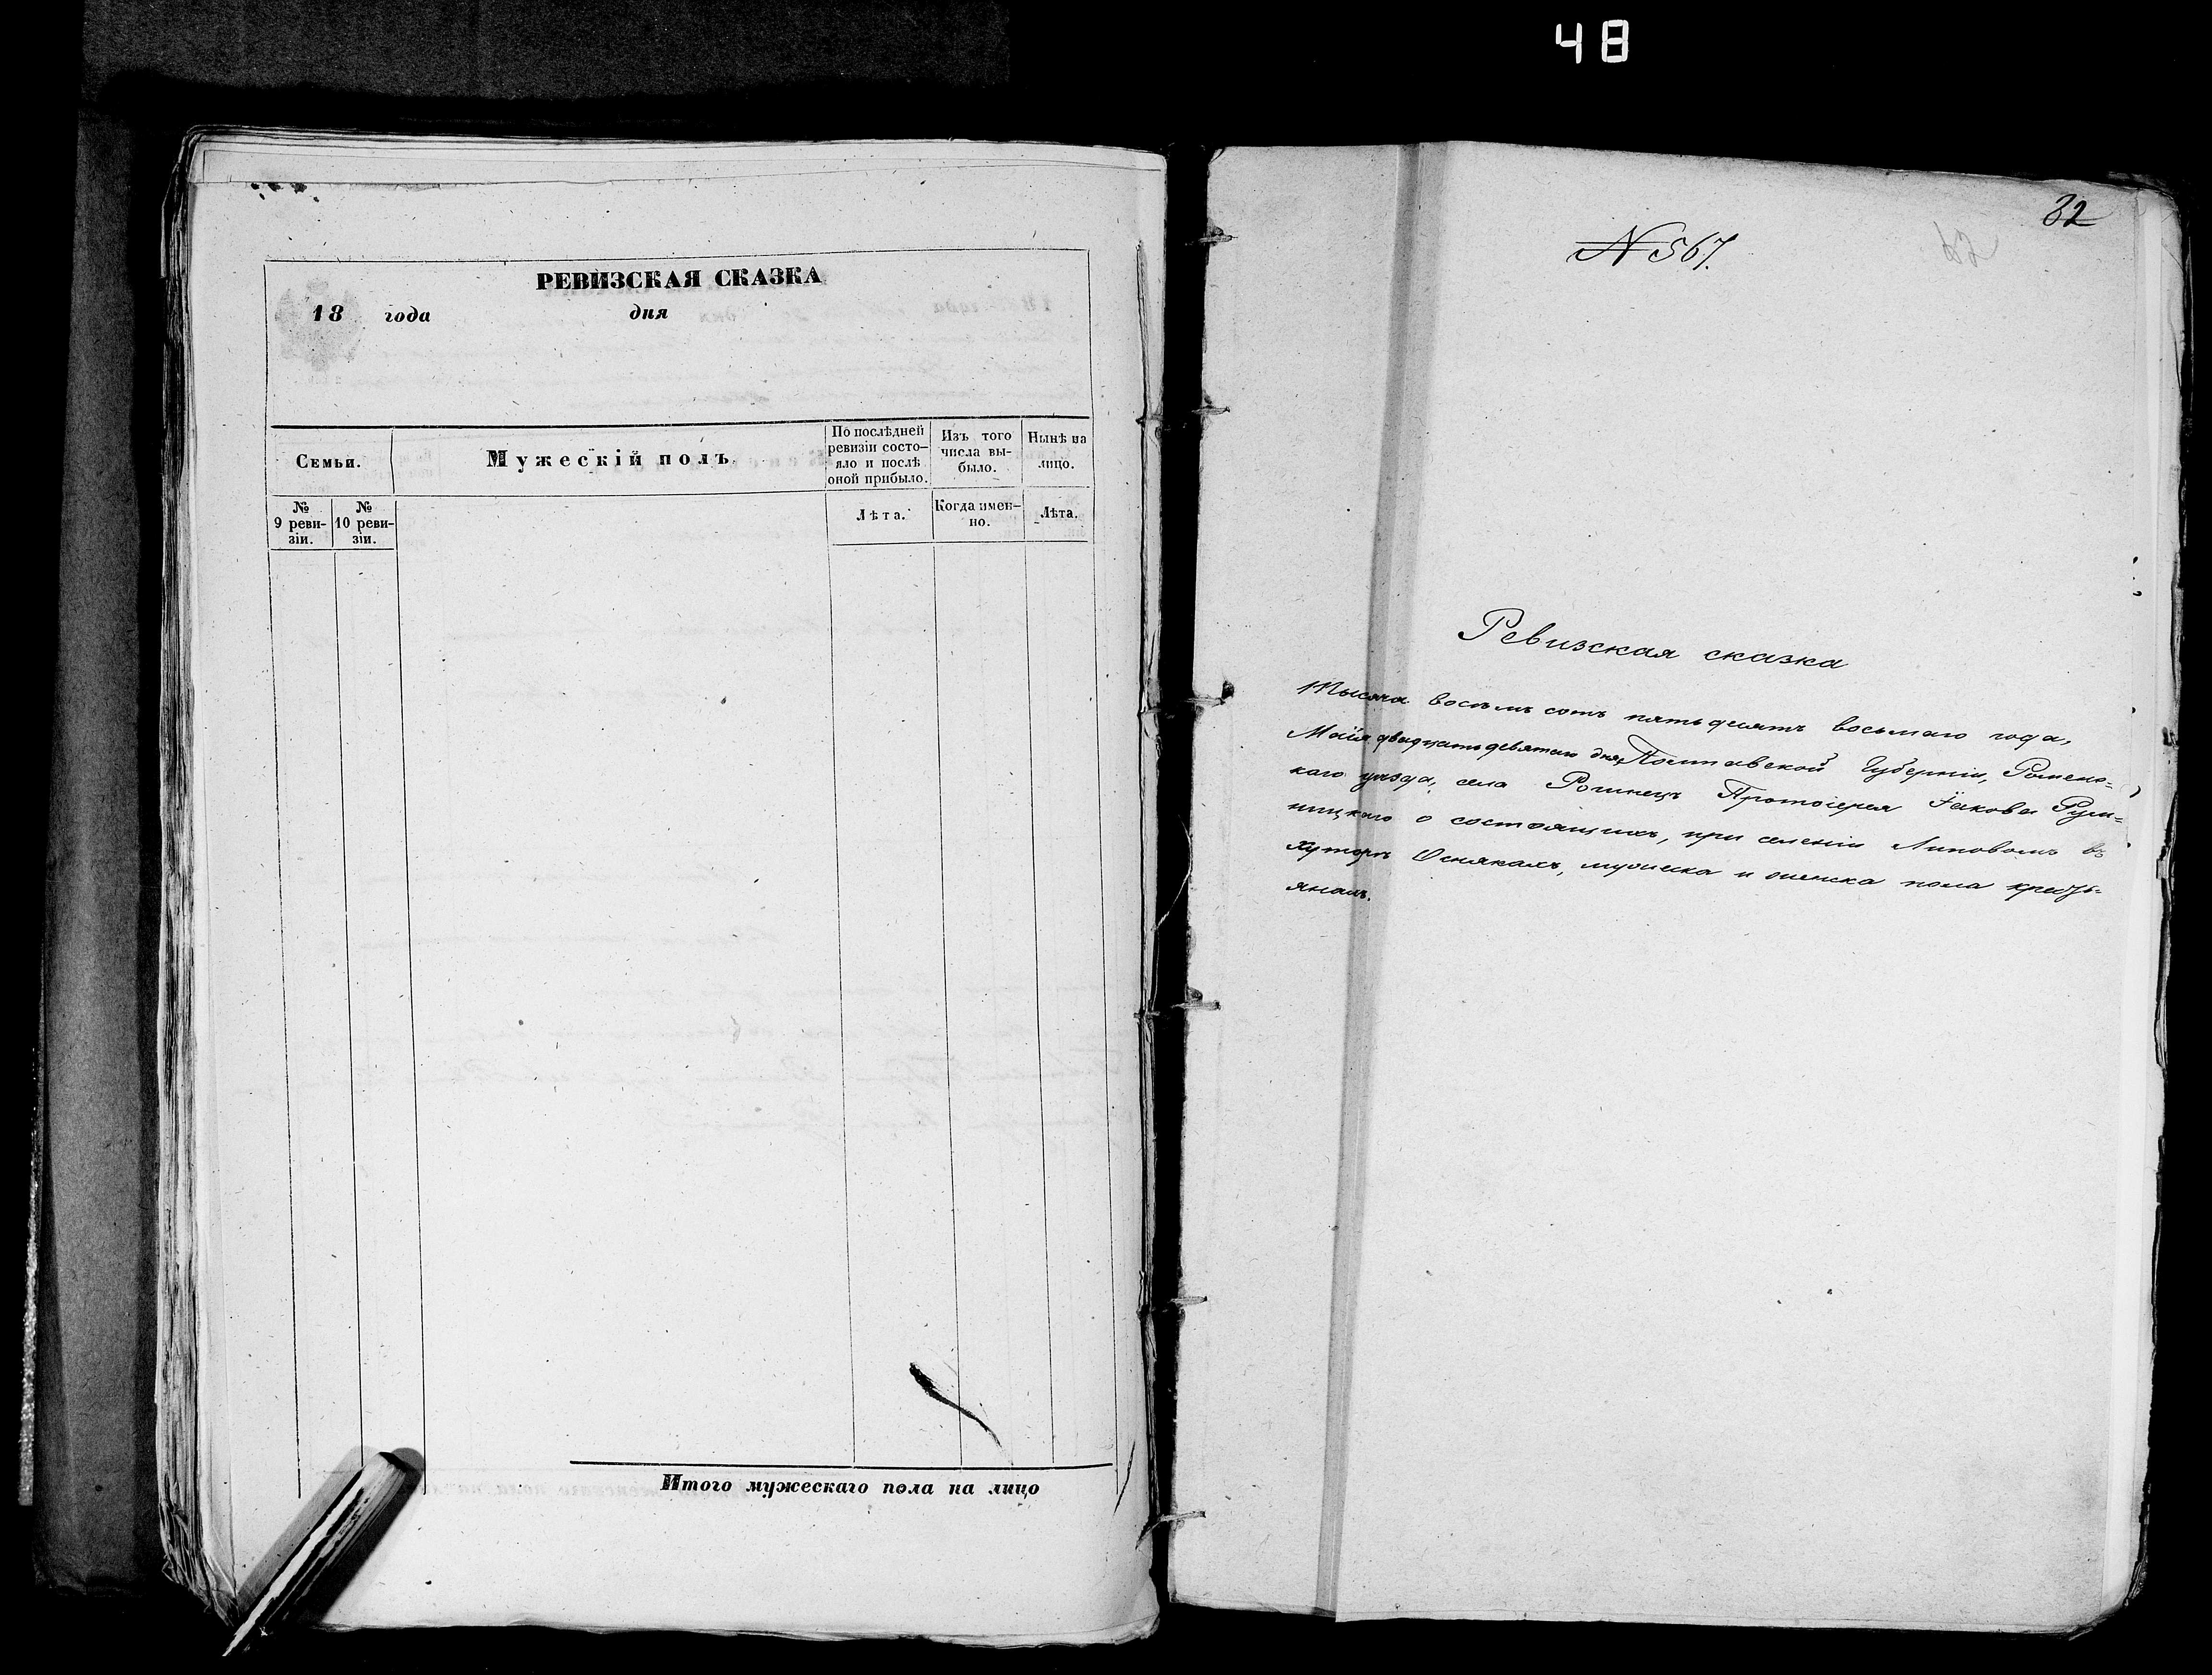 48
РЕВИЗСКАЯ СКАЗКА
18 года дня
Семьи.
Мужескій полъ.
По послѣдней
ревизіи состо-
яло и послѣ
оной прибыло.
Изъ того
числа вы-
было.
Нынѣ на
лицо.
№
9 реви-
зіи.
№
10 реви-
зіи.
Лѣта.
Когда имен-
но.
Лѣта.
Итого мужескаго пола на лицо
82
N 567.
Ревизская сказка
Тысяча восемь сотъ пятьдесятъ восьмаго года,
Маія двадцать девятаго дня, Полтавской Губерніи, Роменс=
каго уѣзда, села Рогинецъ Протоіерея Іакова Рум=
ницкаго о состоящихъ, при селеніи Липовомъ въ
хуторѣ Оснякахъ, мужеска и женска пола кресть=
янахъ.